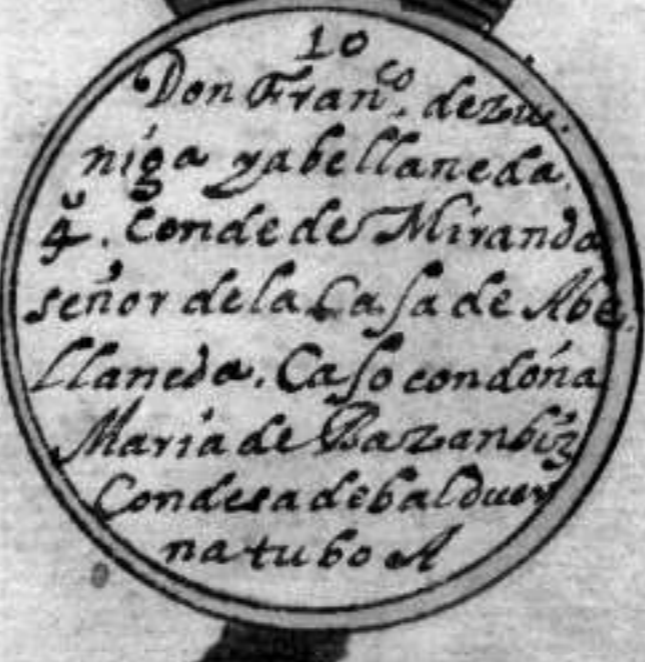 10
Don Fran^co. dezu.
niga yabellaneda.
4º. Conde de Miranda
señor de la Casa de Abe.
llaneda. Caso con doña
Maria de Bazan biz
Condesa de balduer
na tubo A